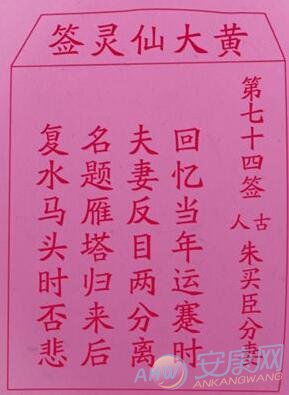 黄大仙灵签
第七十四签
古人
朱买臣分妻
回忆当年运蹇时
夫妻反目两分离
名题雁塔归来后
复水马头时否悲
安康网
ANKANGWANG